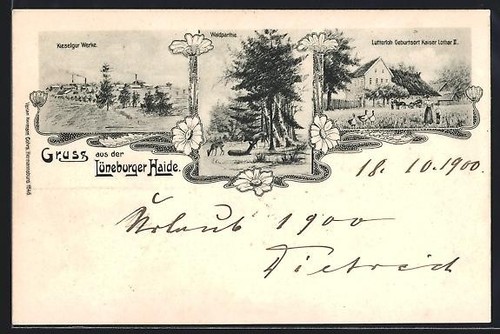 Kieselgur Werke.
Waldparthie
Lutterloh Geburtsort Kaiser Lothar II.
Gruss aus der
Lüneburger Haide.
18. 10. 1900.
Urlaub 1900
Dietreich